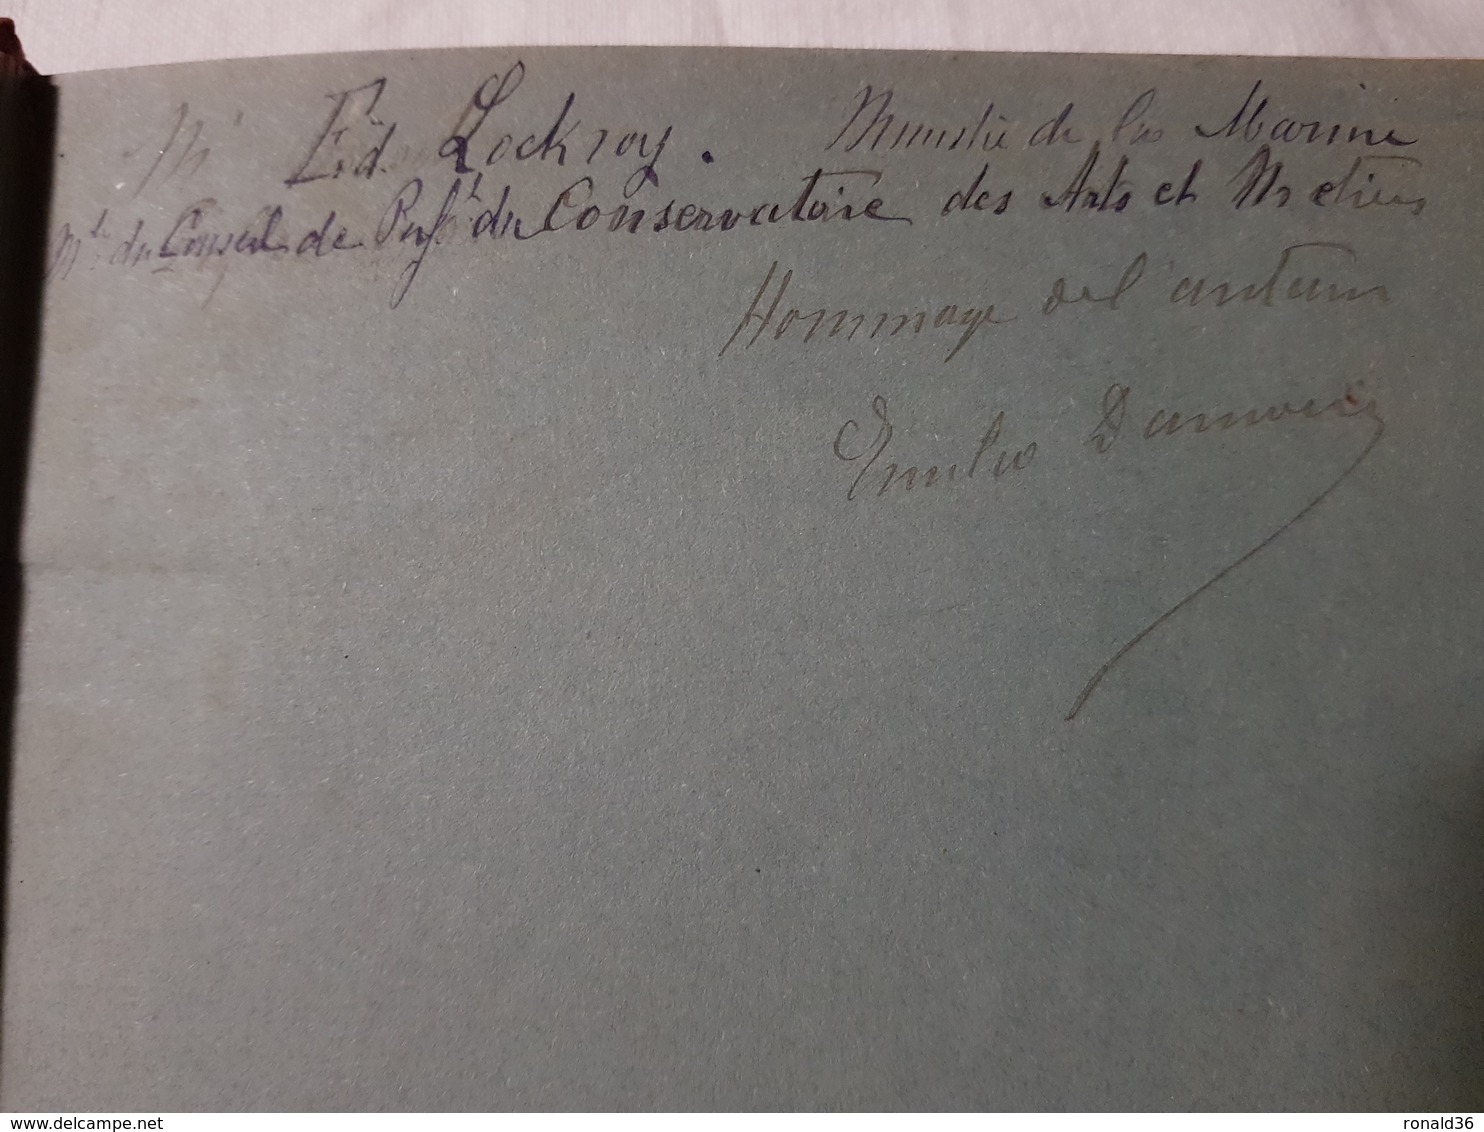 Mr Ed. Lockroy. Ministre de la Marine
du Conseil de Perft du Conservatoire des Arts et Metiers
Hommage de l'auteur
Emilio Damour
© www.delcampe.net
ronald36